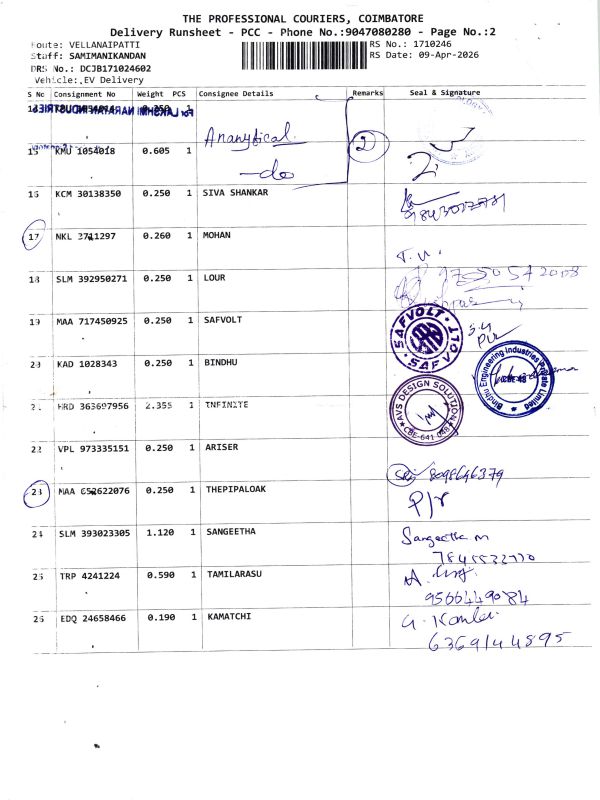 THE PROFESSIONAL COURIERS, COIMBATORE
Delivery Runsheet - PCC - Phone No.:9047080280 - Page No.:2
Route: VELLANAIPATTI
RS No.: 1710246
Staff: SAMIMANIKANDAN
RS Date: 09-Apr-2026
DRS No.: DCJB171024602
Vehicle:.EV Delivery
S No Consignment No Weight PCS Consignee Details Remarks Seal & Signature
14 0.250 1
For LAKSHMI NARAYAN INDUSTRIES
15 KMU 1054018 0.605 1 Ananytical 2
-do
16 KCM 30138350 0.250 1 SIVA SHANKAR
17 NKL 3711297 0.260 1 MOHAN
18 SLM 392950271 0.250 1 LOUR
19 MAA 717450925 0.250 1 SAFVOLT
SAFVOLT SAFVOLT
20 KAD 1028343 0.250 1 BINDHU
Bindhu Engineering Industries Private Limited
21 HRD 363697956 2.355 1 INFINITE
AVS DESIGN SOLUTION
CBE-641 048
22 VPL 973335151 0.250 1 ARISER
8098646379
23 MAA 652622076 0.250 1 THEPIPALOAK
P/r
24 SLM 393023305 1.120 1 SANGEETHA Sangeetha m
25 TRP 4241224 0.590 1 TAMILARASU
9566449084
26 EDQ 24658466 0.190 1 KAMATCHI
6369144895